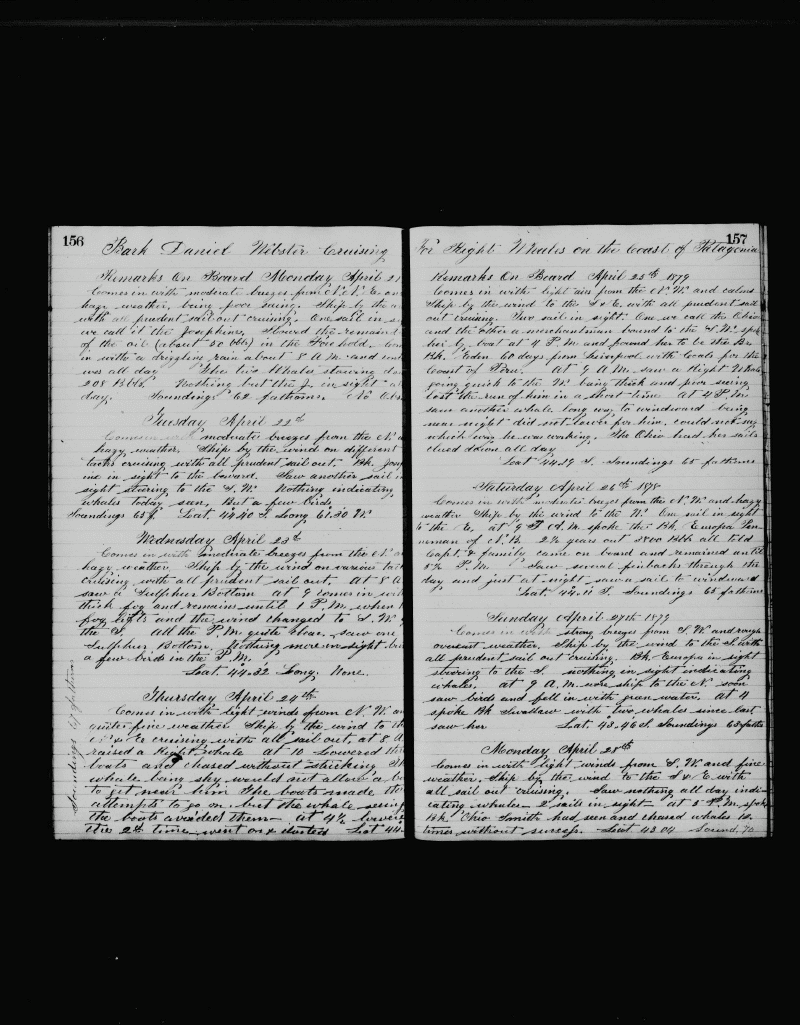 156
Bark Daniel Webster Cruising
Remarks On Board Monday April 21
Comes in with moderate breezes from N. N. E. and
hazy weather, being poor seeing. Ship by the
with all prudent sail out cruising. One sail in
we call it the Josephine, Stowed the remain
of the oil (about 20 bbls) in the Forehold.
in with a drizzling rain about 8 A.M. and
ues all day The two Whales stowing
208 Bbls. Nothing but the J. in sight
day. Soundings 62 fathoms. No Obs
Tuesday April 22d
Comes in with moderate breezes from the N.
hazy weather, Ship by the wind on different
tacks cruising with all prudent sail out. Bk. Jose
ine in sight to the leward. Saw another sail in
sight stearing to the S. W. Nothing indicating
whales today seen, But a few birds
Soundings 65 f. Lat. 44.40 S. Long 61.30 W.
Wednesday April 23d
Comes in with moderate breezes from the N.
hazy weather. Ship by the wind on various tac
cruising with all prudent sail out. At 8 A
saw a Sulphur Bottom at 9 comes in wi
thick fog and remains until 1 P.M. when
fog lifts and the wind changed to S. W.
the S. All the P.M. quite clear. saw one
Sulphur Bottom. Nothing more in sight. but
a few birds in the P.M.
Lat. 44.32 Long. None.
Thursday April 24th
Comes in with light winds from N. W. an
quite fine weather. Ship by the wind to th
& E cruising with all sail out, at 8 A
raised a Right whale at 10 Lowered the
boats and chased without stricking
whale being shy would not allow a b
to get near him The boats made the
attempts to go on. but the whale seeing
the boats avoided them at 4½ lower
the 2d time went on & darted Lat 44
Soundings 65 fathoms
157
For Right Whales on the Coast of Patagonia
Remarks On Board April 25th 1879
Comes in with light airs from the N. W. and calms
Ship by the wind to the S & E. with all prudent sail
out cruising. Two sail in sight. One we call the Ohio
and the other a merchantman bound to the S. W. spok
her by boat at 4 P.M. and found her to be the Br.
Bk. Eden 60 days from Liverpool with Coals for the
Coast of Peru. At 9 A.M. saw a Right Whale
going quick to the W. being thick and poor seeing
lost the run of him in a short time At 4 P.M.
saw another whale long way to windward being
near night did not lower for him. could not say
which way he was working. The Ohio had her sails
clued down all day
Lat 44.19 S. Soundings 65 fathoms
Saturday April 26th 1878
Comes in with moderate breezes from the N. W. and hazy
weather Ship by the wind to the W. One sail in sight
to the E. at 9 A.M. spoke the Bk. Europa Pen
neman of N. B. 2½ years out 3700 Bbls all told
Capt. & family came on board and remained until
5½ P.M. Saw several finbacks through the
day and just at night saw a sail to windward
Lat. 44.11 S. Soundings 65 fathoms
Sunday April 27th 1879
Comes in with strong breezes from S. W. and rough
overcast weather. Ship by the wind to the S. with
all prudent sail out cruising. Bk. Europa in sight
stearing to the S. nothing in sight indicating
whales. at 9 A.M. wore ship to the N. soon
saw birds and fell in with green water. At 4
spoke Bk Swallow with two whales since last
saw her Lat. 43.46 S. Soundings 63 fath
Monday April 28th
Comes in with light winds from S. W. and fine
weather. Ship by the wind to the S & E with
all sail out cruising. Saw nothing all day indi-
cating whales. 2 sails in sight at 3 P.M. spok
Bk. Ohio Smith had seen and chased whales 12
times without success. Lat 43.04 Sound. 70